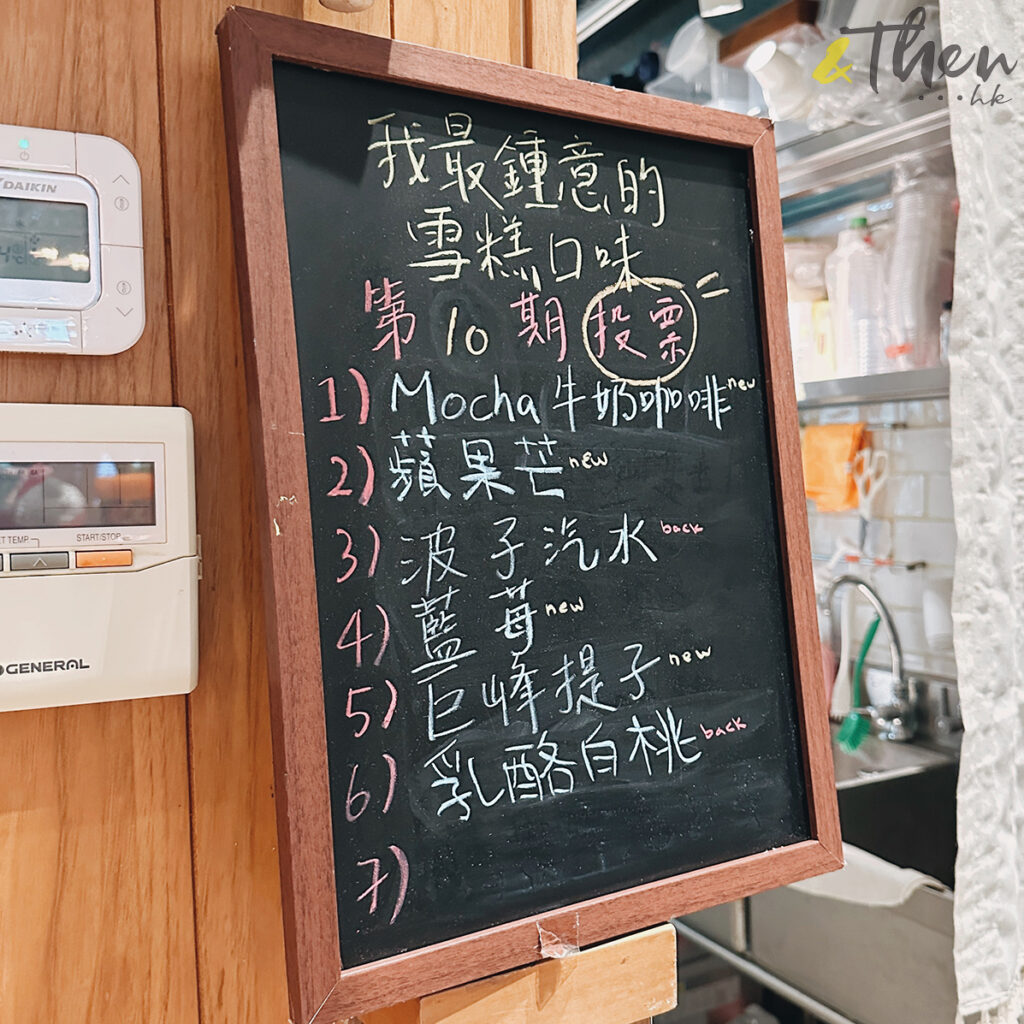 &Then
...hk
我最鍾意的
雪糕口味
第10期 投票
1) Mocha牛奶咖啡 new
2) 蘋果芒 new
3) 波子汽水 back
4) 藍莓 new
5) 巨峰提子 new
6) 乳酪白桃 back
7)
DAIKIN
START/STOP
GENERAL